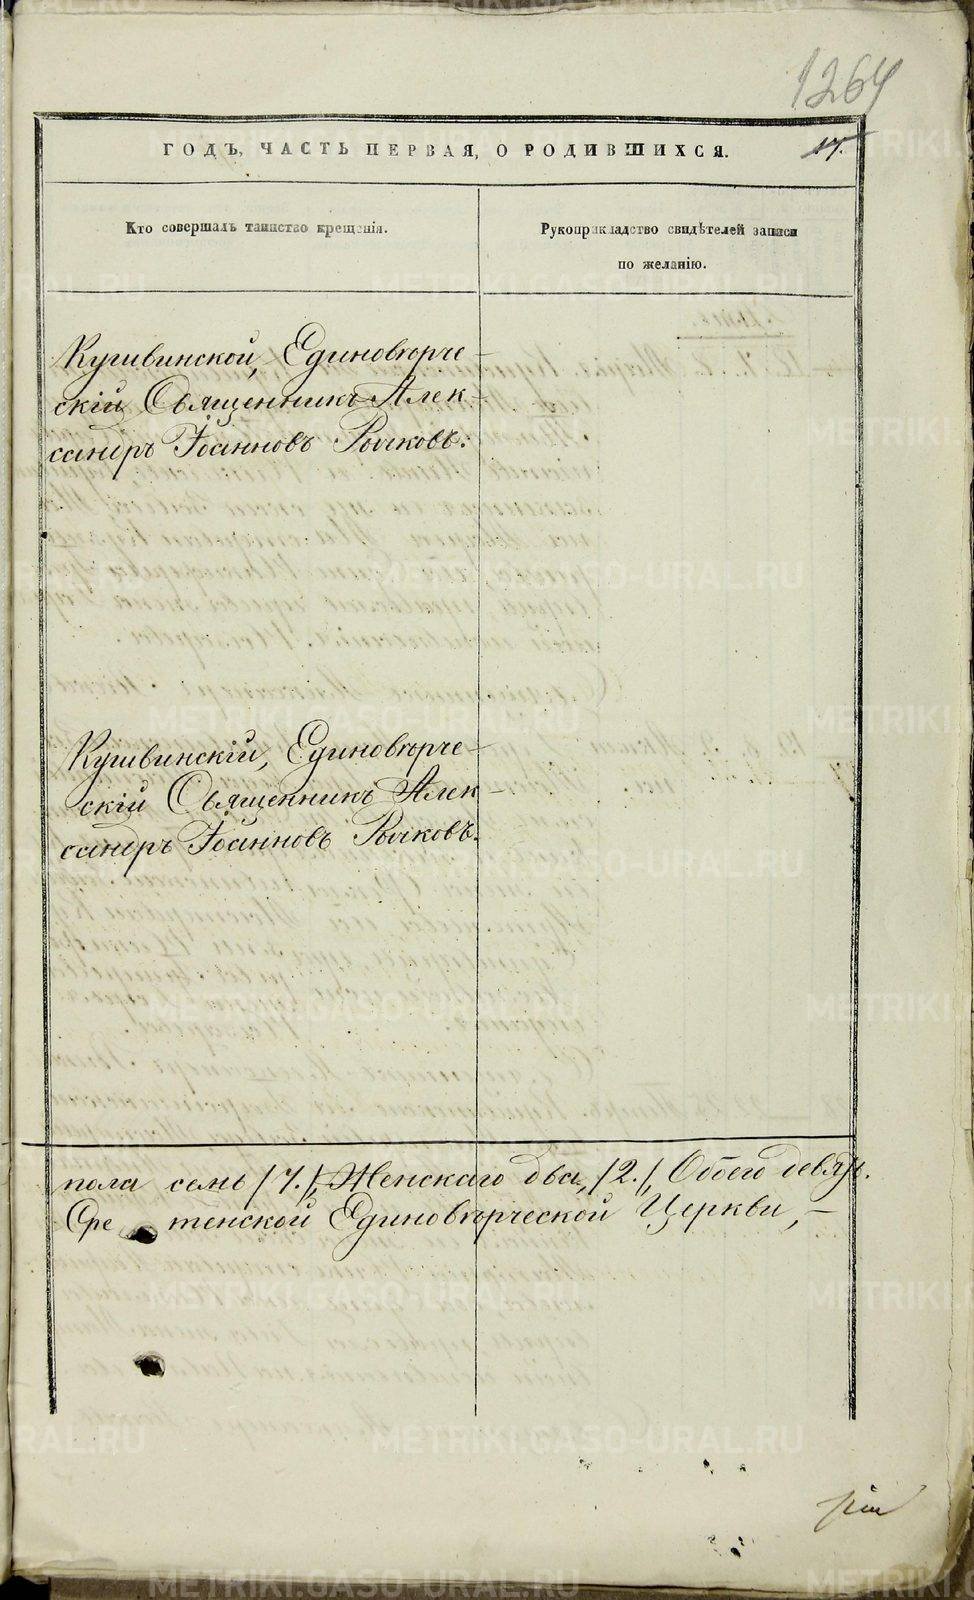 1264
ГОДЪ, ЧАСТЬ ПЕРВАЯ, О РОДИВШИХСЯ.
17.
Кто совершалъ таинство крещенія.
Рукоприкладство свидѣтелей записи
по желанію.
Кушвинской, Единовѣрче-
скій Священникъ Алек-
сандръ Іоанновъ Рычковъ.
Кушвинскій, Единовѣрче-
скій Священникъ Алек-
сандръ Іоанновъ Рычковъ.
пола семь /7./, Женскаго два, /2./, Обоего девять.
Сретенской Единовѣрческой Церкви,
METRIKI.GASO-URAL.RU